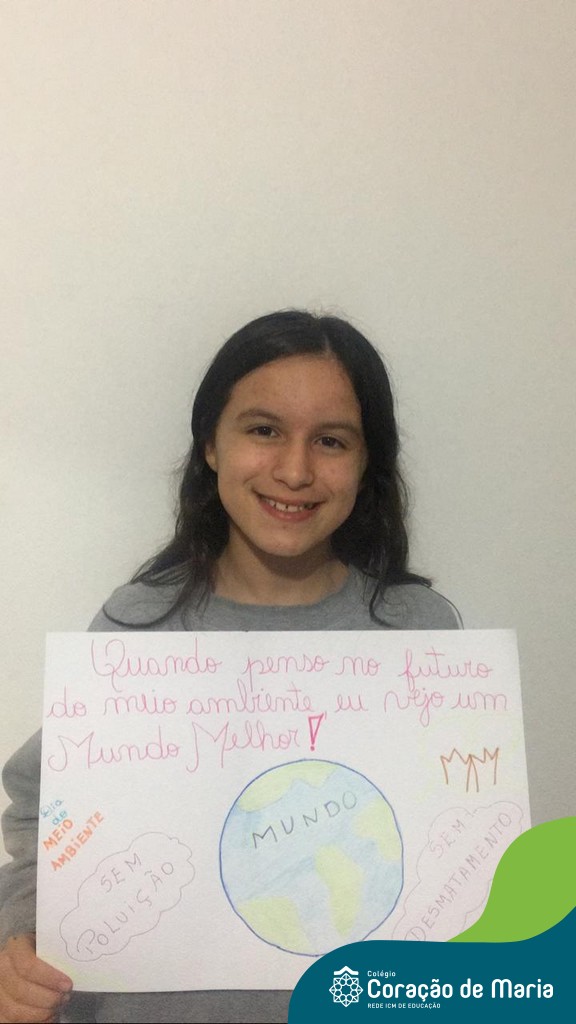 Quando penso no futuro
do meio ambiente, eu vejo um
Mundo Melhor!
Dia
do
MEIO
AMBIENTE
SEM
POLUIÇÃO
MUNDO
SEM
DESMATAMENTO
Colégio
Coração de Maria
REDE ICM DE EDUCAÇÃO